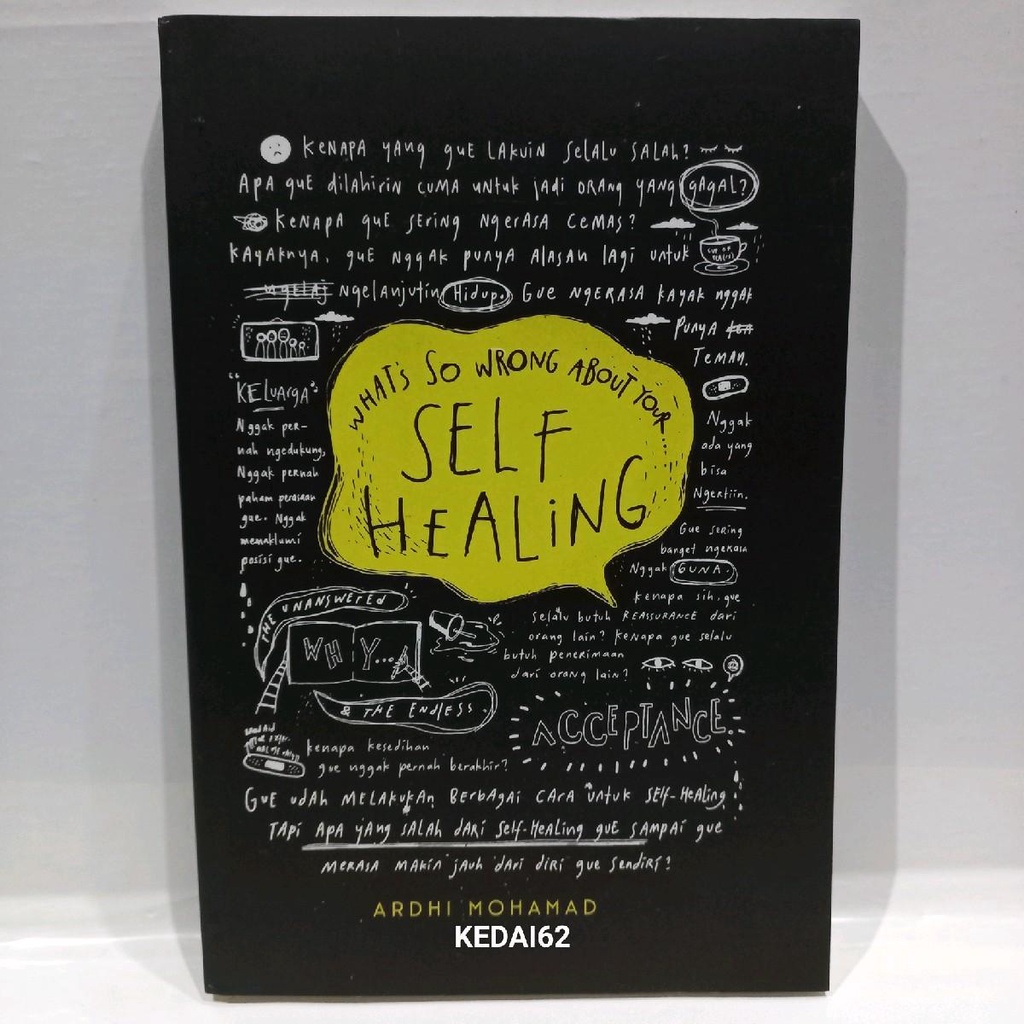 KENAPA YANG GUE LAKUIN SELALU SALAH?
APA GUE DILAHIRIN CUMA UNTUK JADI ORANG YANG GAGAL?
KENAPA GUE SERING NGERASA CEMAS?
KAYAKNYA, GUE NGGAK PUNYA ALASAN LAGI UNTUK
NGELANJUTIN HIDUP. GUE NGERASA KAYAK NGGAK
PUNYA
TEMAN.
WHAT'S SO WRONG ABOUT YOUR
SELF
HEALING
"KELUARGA"
Nggak per-
nah ngedukung,
Nggak pernah
paham perasaan
gue. Nggak
memaklumi
posisi gue.
Nggak
ada yang
bisa
Ngertiin.
Gue sering
banget ngerasa
Nggak GUNA.
kenapa sih, gue
selalu butuh REASSURANCE dari
orang lain? kenapa gue selalu
butuh penerimaan
dari orang lain?
THE UNANSWERED
WHY...
& THE ENDLESS.
ACCEPTANCE
kenapa kesedihan
gue nggak pernah berakhir?
GUE UDAH MELAKUKAN BERBAGAI CARA UNTUK SELF-HEALING,
TAPI APA YANG SALAH DARI SELF-HEALING GUE SAMPAI GUE
MERASA MAKIN JAUH DARI DIRI GUE SENDIRI?
ARDHI MOHAMAD
KEDAI62